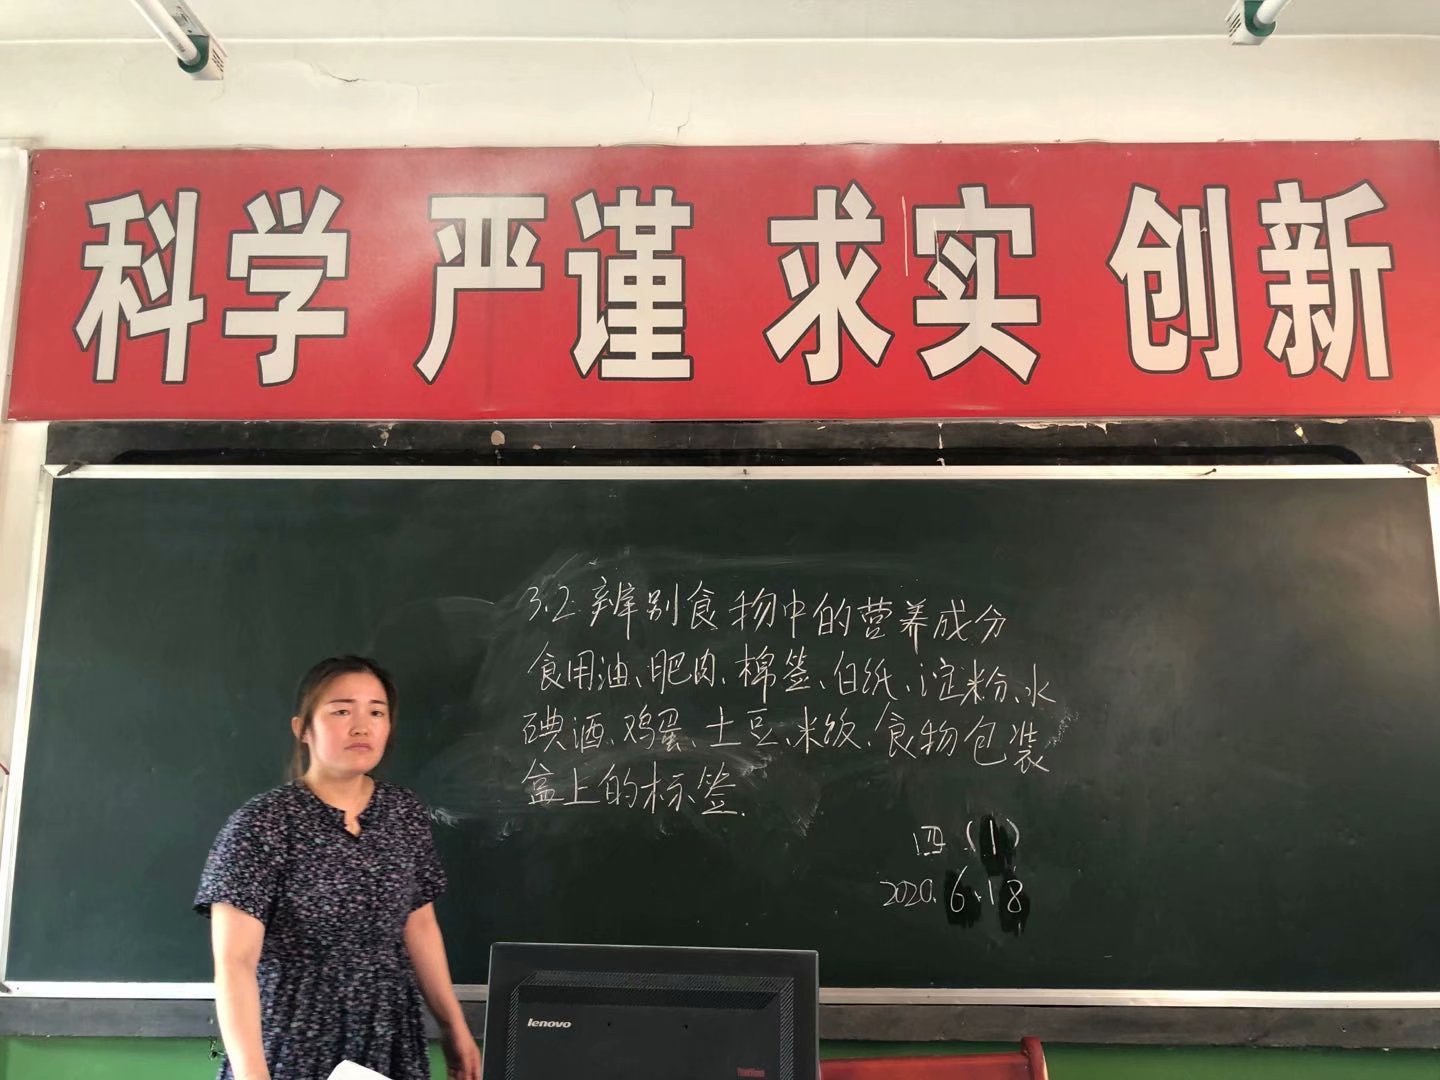 科学 严谨 求实 创新
3.2.辨别食物中的营养成分
食用油、肥肉、棉签、白纸、淀粉、水
碘酒、鸡蛋、土豆、米饭、食物包装
盒上的标签.
四(1)
2020.6.18
lenovo
ThinkVision